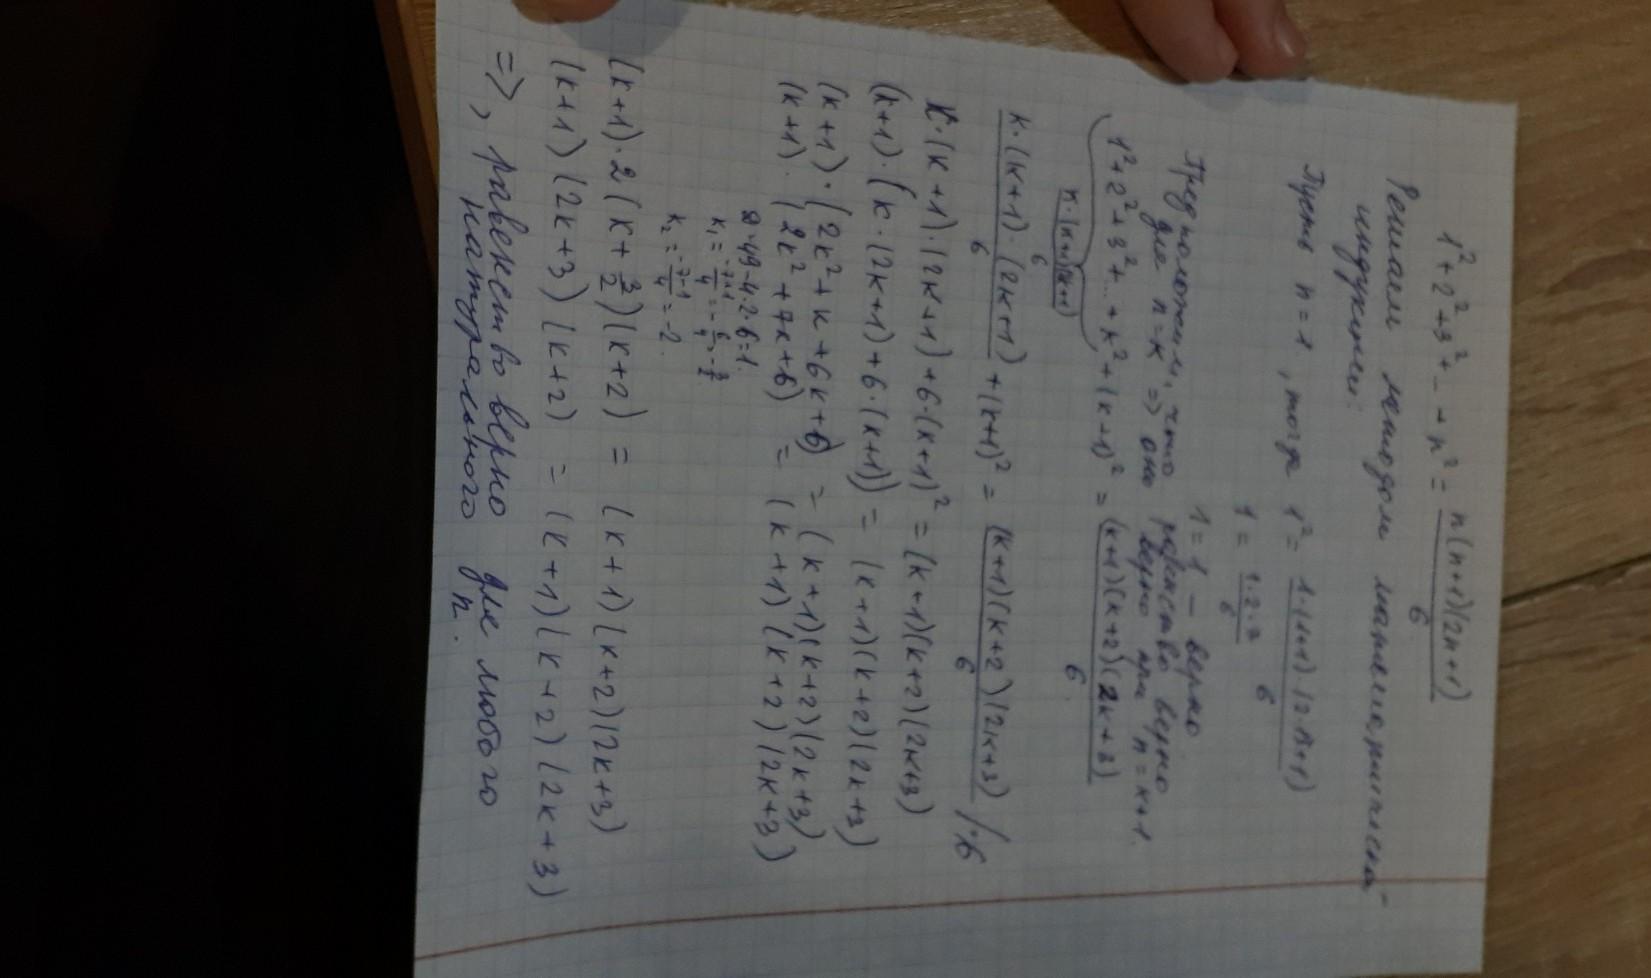 1² + 2² + 3² + ... + n² = n(n+1)(2n+1) / 6
Решаем методом математической-
индукции.
Пусть n = 1, тогда 1² = 1·(1+1)·(2·1+1) / 6
1 = 1·2·3 / 6
1 = 1 – верно
Предположим, что равенство верно
для n = k => оно верно при n = k+1.
1² + 2² + 3² + ... + k² + (k+1)² = (k+1)(k+2)(2k+3) / 6.
n·(n+1)(2n+1) / 6
k·(k+1)·(2k+1) / 6 + (k+1)² = (k+1)(k+2)(2k+3) / 6 /·6
k·(k+1)·(2k+1) + 6·(k+1)² = (k+1)(k+2)(2k+3)
(k+1)·(k·(2k+1) + 6·(k+1)) = (k+1)(k+2)(2k+3)
(k+1)·(2k² + k + 6k + 6) = (k+1)(k+2)(2k+3)
(k+1)·(2k² + 7k + 6) = (k+1)(k+2)(2k+3)
D = 49 - 4·2·6 = 1.
k₁ = -7+1 / 4 = -6/4 = -3/2
k₂ = -7-1 / 4 = -2.
(k+1)·2(k + 3/2)(k+2) = (k+1)(k+2)(2k+3)
(k+1)(2k+3)(k+2) = (k+1)(k+2)(2k+3)
=>, равенство верно для любого
натурального n.